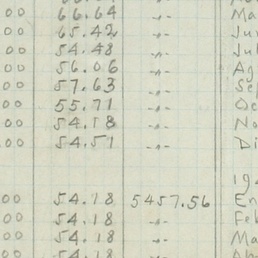 00 66.64 -"- Ma
00 65.42 -"- Jun
00 54.48 -"- Jul
00 56.06 -"- Ag
00 57.63 -"- Sep
00 55.71 -"- Oc
00 54.18 -"- No
.00 54.51 -"- Di
19
00 54.18 5457.56 En
00 54.18 -"- Feb
00 54.18 -"- Ma
00 54.18 -"-